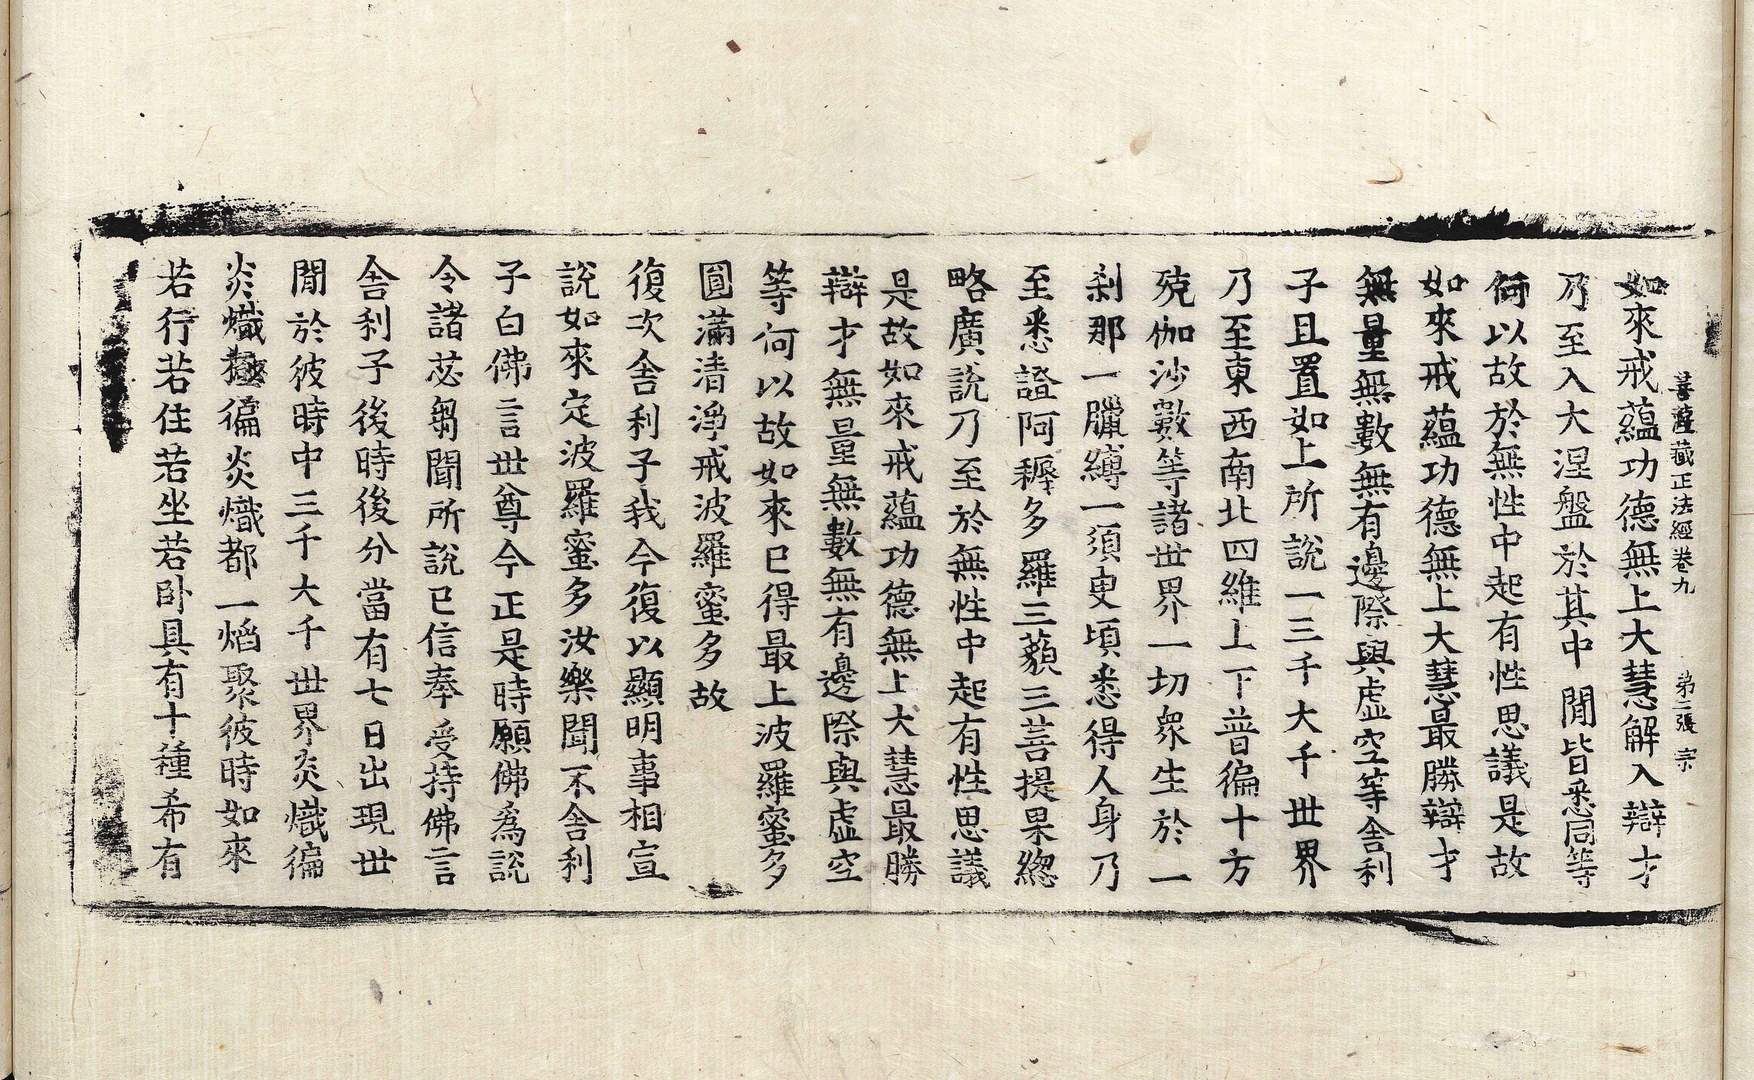 菩薩藏正法經卷九 第二張 宗
如來戒蘊功德無上大慧解入辯才
乃至入大涅盤於其中間皆悉同等
何以故於無性中起有性思議是故
如來戒蘊功德無上大慧最勝辯才
無量無數無有邊際與虛空等舍利
子且置如上所說一三千大千世界
乃至東西南北四維上下普徧十方
殑伽沙數等諸世界一切衆生於一
刹那一臘縛一須臾頃悉得人身乃
至悉證阿耨多羅三藐三菩提果緫
略廣說乃至於無性中起有性思議
是故如來戒蘊功德無上大慧最勝
辯才無量無數無有邊際與虛空
等何以故如來已得最上波羅蜜多
圓滿清淨戒波羅蜜多故
復次舍利子我今復以顯明事相宣
說如來定波羅蜜多汝樂聞不舍利
子白佛言世尊今正是時願佛爲說
令諸苾芻聞所說已信奉受持佛言
舍利子後時後分當有七日出現世
間於彼時中三千大千世界炎熾徧
炎熾極徧炎熾都一熖聚彼時如來
若行若住若坐若卧具有十種希有